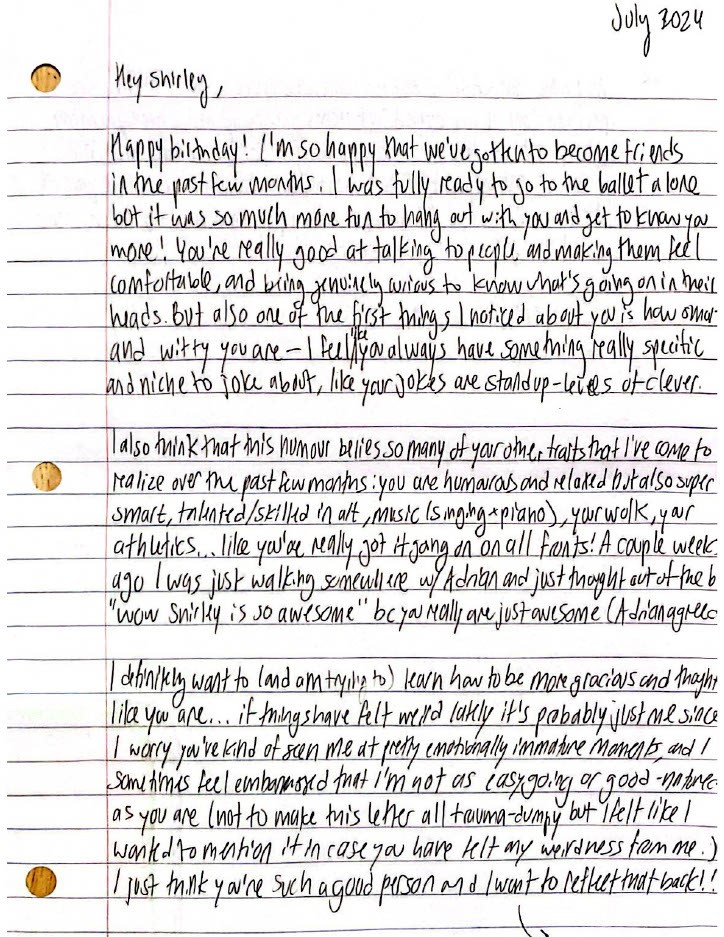 July 2024
Hey Shirley,
Happy birthday! I'm so happy that we've gotten to become friends
in the past few months. I was fully ready to go to the ballet alone
but it was so much more fun to hang out with you and get to know you
more! You're really good at talking to people, and making them feel
comfortable, and being genuinely curious to know what's going on in their
heads. But also one of the first things I noticed about you is how smar
and witty you are – I feel like you always have something really specific
and niche to joke about, like your jokes are standup-levels of clever.
I also think that this humour belies so many of your other traits that I've come to
realize over the past few months: you are humorous and relaxed but also super
smart, talented/skilled in art, music (singing + piano), your work, your
athletics... like you've really got it going on on all fronts! A couple week
ago I was just walking somewhere w/ Adrian and just thought out of the b
"wow Shirley is so awesome" bc you really are just awesome (Adrian agreed
I definitely want to (and am trying to) learn how to be more gracious and though
like you are... if things have felt weird lately it's probably just me since
I worry you've kind of seen me at pretty emotionally immature moments, and I
sometimes feel embarrassed that I'm not as easygoing or good-nature
as you are (not to make this letter all trauma-dumpy but I felt like I
wanted to mention it in case you have felt any weirdness from me.)
I just think you're such a good person and I want to reflect that back!!